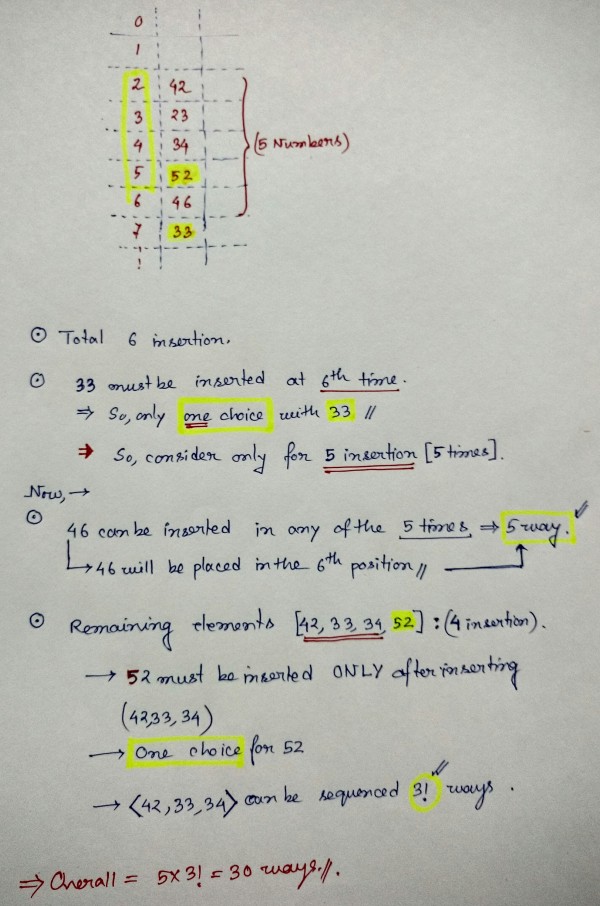 0
1
2 42
3 23
4 34
5 52
6 46
7 33
(5 Numbers)
Total 6 insertion.
33 must be inserted at 6th time.
⇒ So, only one choice with 33 //
⇒ So, consider only for 5 insertion [5 times].
Now, →
46 can be inserted in any of the 5 times ⇒ 5 way.
→ 46 will be placed in the 6th position //
Remaining elements [42, 33, 34, 52] : (4 insertion).
→ 52 must be inserted ONLY after inserting
(42,33,34)
→ One choice for 52
→ <42,33,34> can be sequenced 3! ways.
⇒ Overall = 5x3! = 30 ways.//.